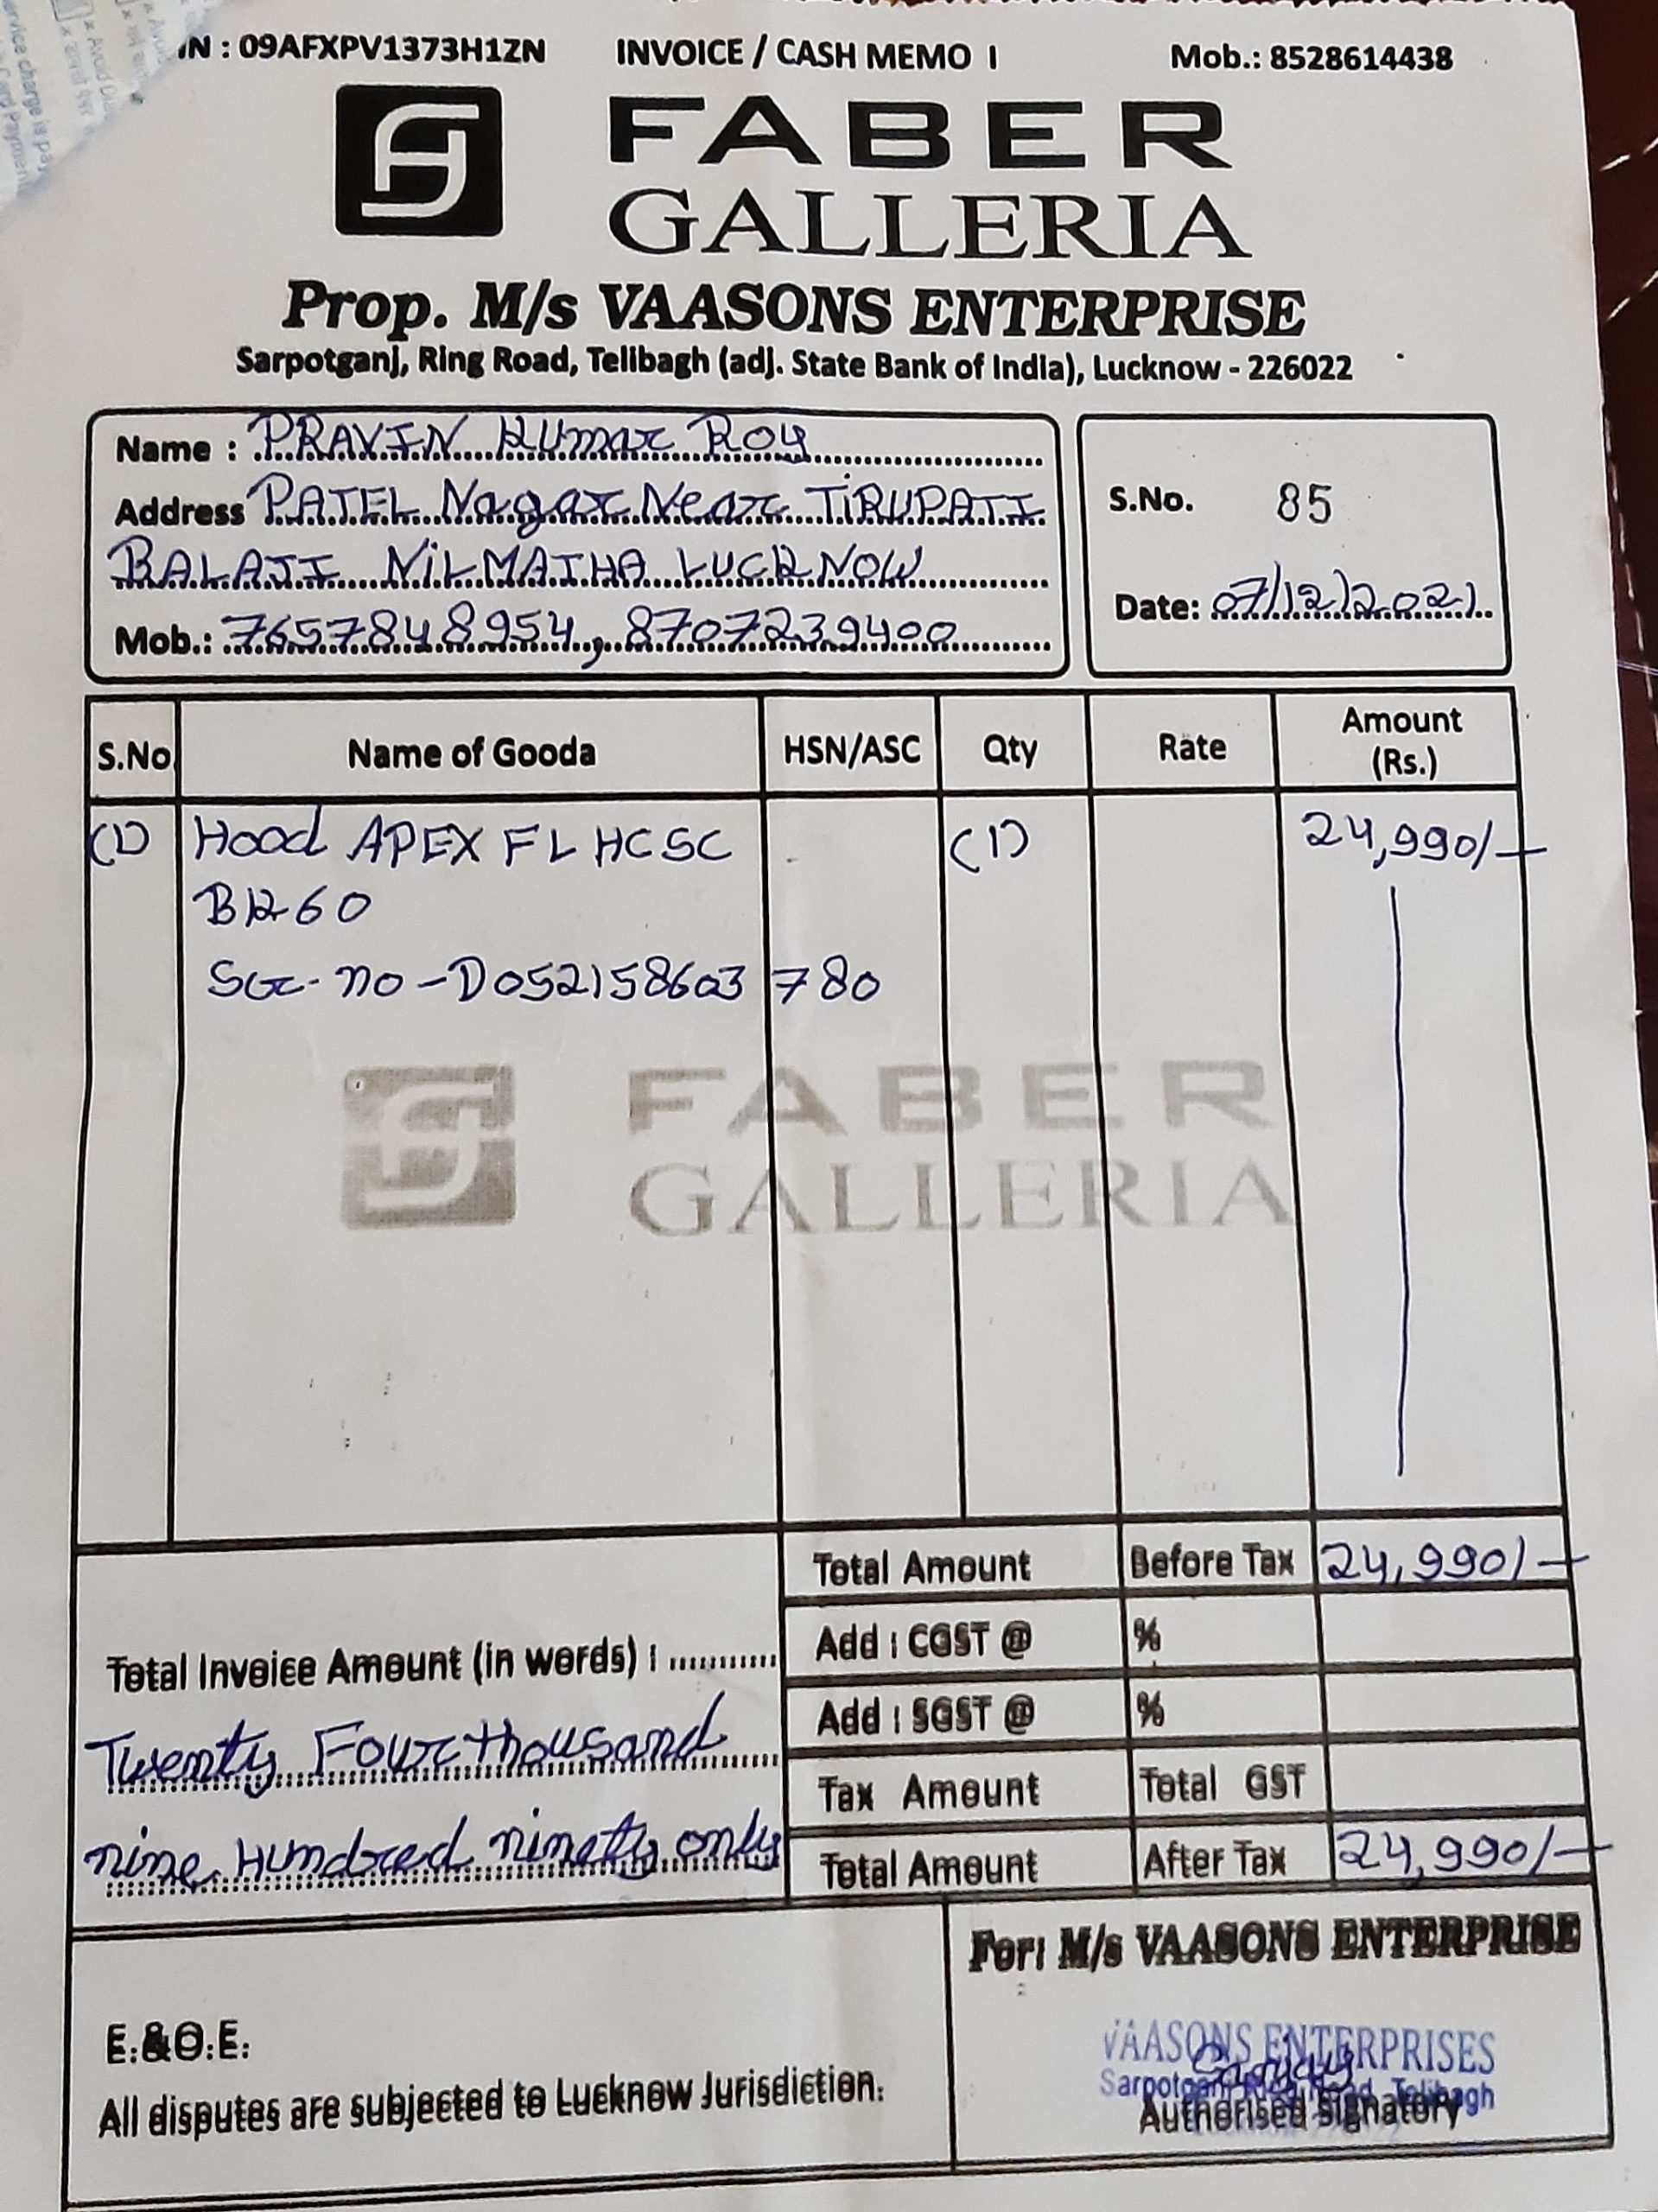 IN : 09AFXPV1373H1ZN INVOICE / CASH MEMO I Mob.: 8528614438
FABER
GALLERIA
Prop. M/s VAASONS ENTERPRISE
Sarpotganj, Ring Road, Telibagh (adj. State Bank of India), Lucknow - 226022
Name : PRAVIN Kumar Roy
Address PATEL Nagar Near TIRUPATI
BALAJI NILMATHA LUCKNOW
Mob.: 7657848954, 8707239400
S.No. 85
Date: 07/12/2021
S.No. Name of Gooda HSN/ASC Qty Rate Amount (Rs.)
(1) Hood APEX FL HC SC (1) 24,990/-
BK 60
Ser. no - D052158603 780
FABER
GALLERIA
Total Amount Before Tax 24,990/-
Add : CGST @ %
Add : SGST @ %
Tax Amount Total GST
Total Amount After Tax 24,990/-
Total Invoice Amount (in words) :
Twenty Four thousand
nine Hundred ninety only
For: M/s VAASONS ENTERPRISE
VAASONS ENTERPRISES
Sarpotganj Ring Road, Telibagh
Authorised Signatory
E.&O.E.
All disputes are subjected to Lucknow Jurisdiction.